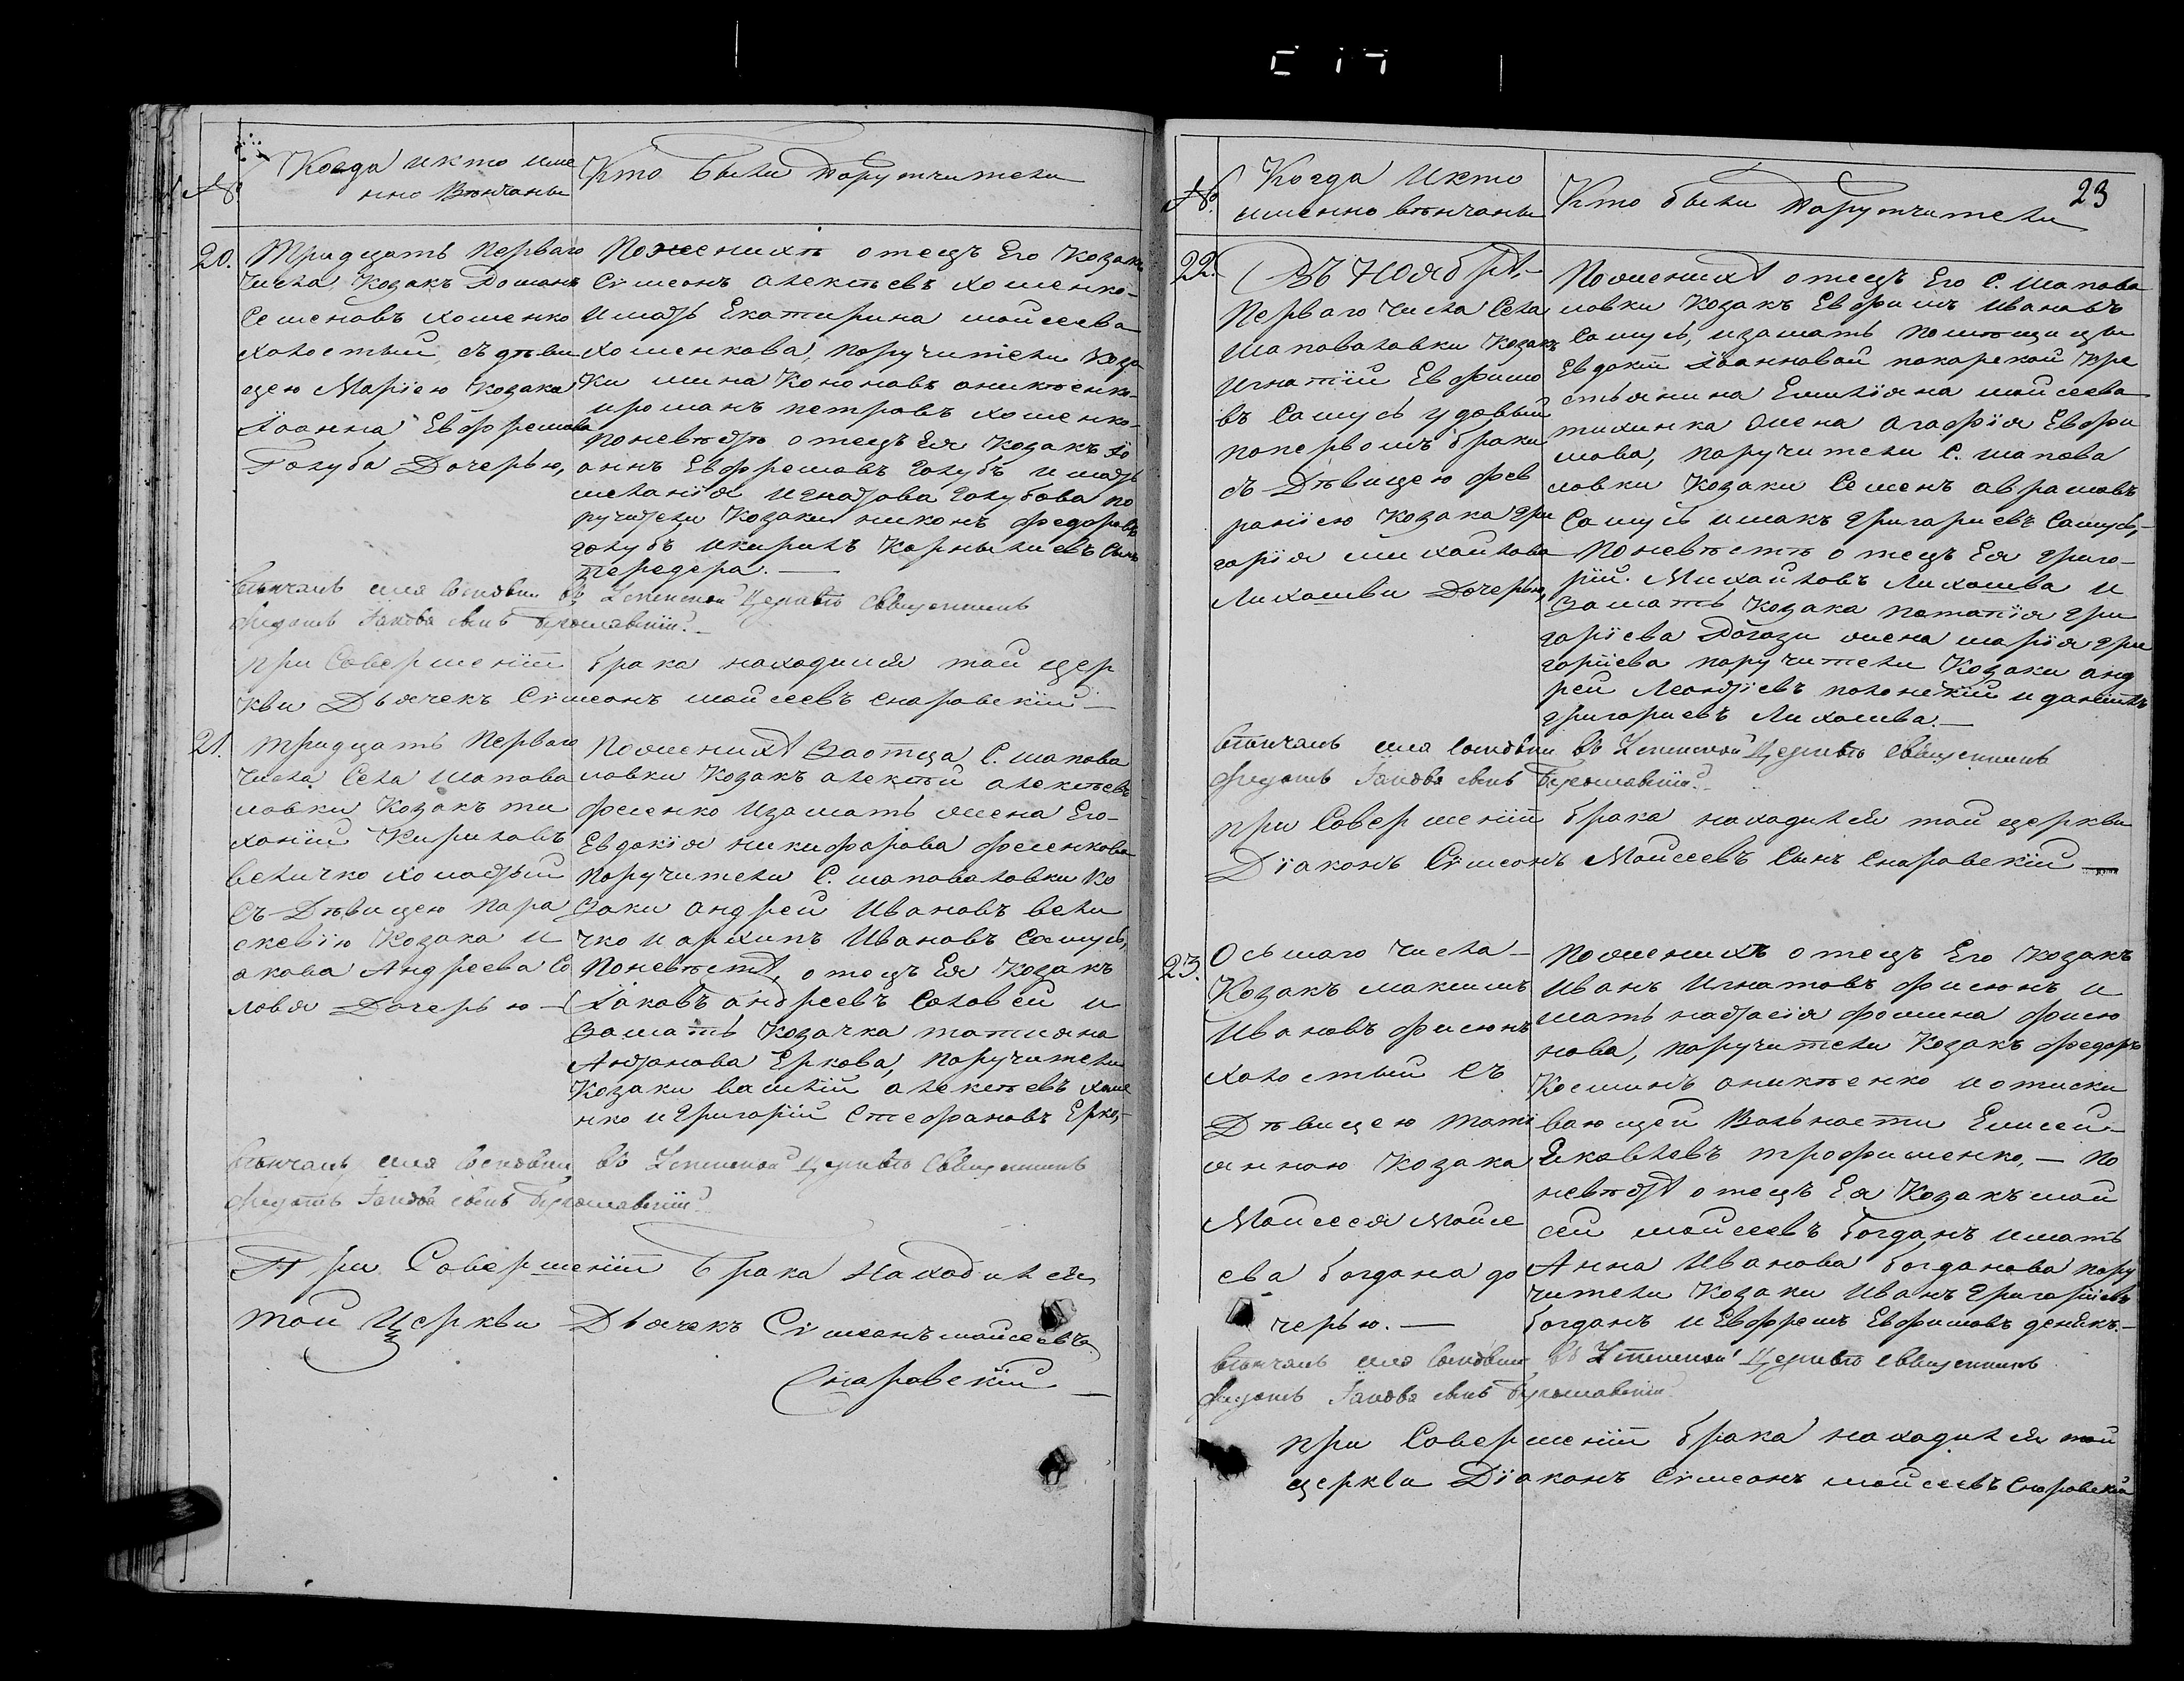 №
Когда икто име
нно Вѣнчаны
Кто были Поручители
20.
Тридцать перваго
числа Козакъ Доманъ
Семеновъ хоменко
холостый съ дѣви
цею Маріею козака
Іоанна Евфремова
Голуба Дочерью,
Поженихѣ отецъ Его козакъ
Сѵмеонъ алексѣевъ хоменко
имать Екатирина мойсеева
хоменкова, поручители коза
ки мина Кононовъ аникѣенко
ироманъ петровъ хоменко
поневѣстѣ отецъ Ея козакъ Іо
аннъ Евфремовъ голубъ имать
меланія игнатова голубова по
ручители козаки никонъ федоровъ
голубъ икирилъ Корнилиевъ сынъ
передера.
Вѣнчалъ сихъ въ Успенской Церкви Священникъ
Іаковъ сынъ
при совершеніи брака находился той цер
кви Дьячекъ Сѵмеонъ мойсеевъ снаровскій
21.
тридцать перваго
числа села шапова
ловки козакъ ти
ханій Кириловъ
величко холостый
съ Дѣвицею пара
скевіею козака и
акова Андреева Со
ловя Дочерью
Поженихѣ Заотца С. шапова
ловки козакъ алексѣй алексѣевъ
фесенко изамать жена Его
Евдокія никифорова фесенкова
поручители С. шаповаловки ко
заки андрей Ивановъ вели
чко иархипъ Ивановъ Самусь,
поневѣстѣ, отецъ Ея козакъ
Іаковъ андреевъ соловей и
Замать козачка татияна
Антонова Еркова, поручители
Козаки василій алексѣевъ хоме
нко игригорій Стефановъ Ерко,
Вѣнчалъ въ Успенской Церкви Священникъ
Іаковъ сынъ
При Совершеніи брака находился
той Церкви Дьячекъ Сѵмеонъ мойсеевъ
Снаровскій
№
Когда икто
именно вѣнчаны
Кто были Поручители
23
22.
Въ Ноябрѣ,
перваго числа села
шаповаловки козакъ
игнатій Евфимо
въ Самусь удовый
поперьвомъ браки
съ Дѣвицею фев
роніею козака гри
горія михайлова
Лихошви Дочерью,
Поженихѣ отецъ Его С. шапова
ловки козакъ Евфимъ Ивановъ
Самусь, изамать помѣщицы
Евдокіи Іоанновой покорской кре
стьянина Емиліяна мойсеева
жена агафія Евфи
мова, поручители С. шапова
ловки козаки Семенъ аврамовъ
Самусь иисакъ григориевъ Самусь,
поневѣстѣ отецъ Ея григо
рій Михайловъ Лихошва и
Замать козака потапія гри
горіева жена марія гри
горіева поручители козаки анд
рей Леонтіевъ иданіилъ
григориевъ Лихошва.
Вѣнчалъ въ Успенской Церкви Священникъ
Іаковъ сынъ
при Совершеніи брака находился той церкви
Діаконъ Сѵмеонъ Мойсеевъ Сынъ Снаровскій
23.
Осьмаго числа
Козакъ максимъ
Ивановъ фисюнъ
холостый съ
Дѣвицею тати
янною козака
Мойсея мойсе
ева богдана до
черью.
Поженихѣ отецъ Его козакъ
Иванъ Игнатовъ фисюнъ и
мать настасія фомина фисю
нова, поручители козакъ федоръ
Косминъ аникѣенко иотиски
вающей Вольности Елисей
Яковлевъ трофименко, по
невѣстѣ отецъ Ея козакъ мой
сей мойсеевъ богданъ имать
Анна Иванова богданова пору
чители козаки Иванъ григоріевъ
богданъ и Евфремъ Евфимовъ
Вѣнчалъ въ Успенской Церкви Священникъ
Іаковъ сынъ
при Совершеніи брака находился той
церкви Діаконъ Сѵмеонъ мойсеевъ Снаровскій